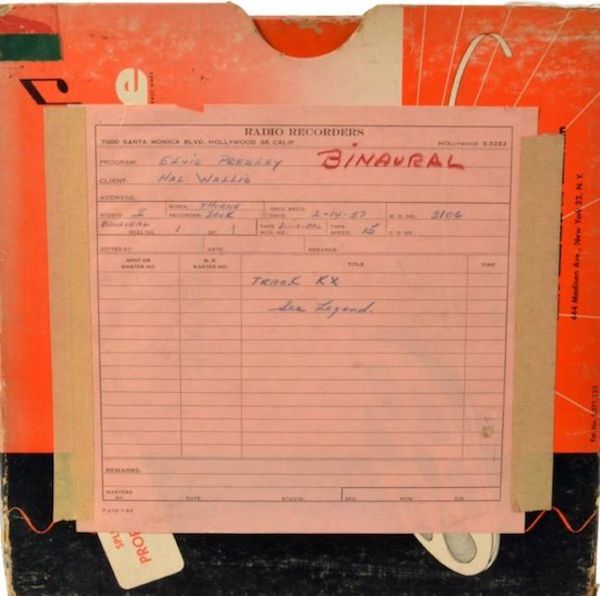 RADIO RECORDERS
7000 SANTA MONICA BLVD. HOLLYWOOD 38, CALIF. HOLLYWOOD 3-3282
PROGRAM: ELVIS PRESLEY BINAURAL
CLIENT: HAL WALLIS
ADDRESS:
STUDIO I MIXER THORNE RECORDER JACK ORIG. RECD. DATE 2-14-57 W.O. NO. 3106
BINAURAL REEL NO. 1 OF 1 TAPE MCH. NO. BINAURAL TAPE SPEED 15 C.O. NO.
EDITED BY: DATE: REMARKS:
SPOT OR MASTER NO. R.R. MASTER NO. TITLE TIME
TRACK KX
See Legend.
REMARKS:
MASTERS BY: DATE: STUDIO: SEC. ROW
444 Madison Ave., New York 22, N. Y.